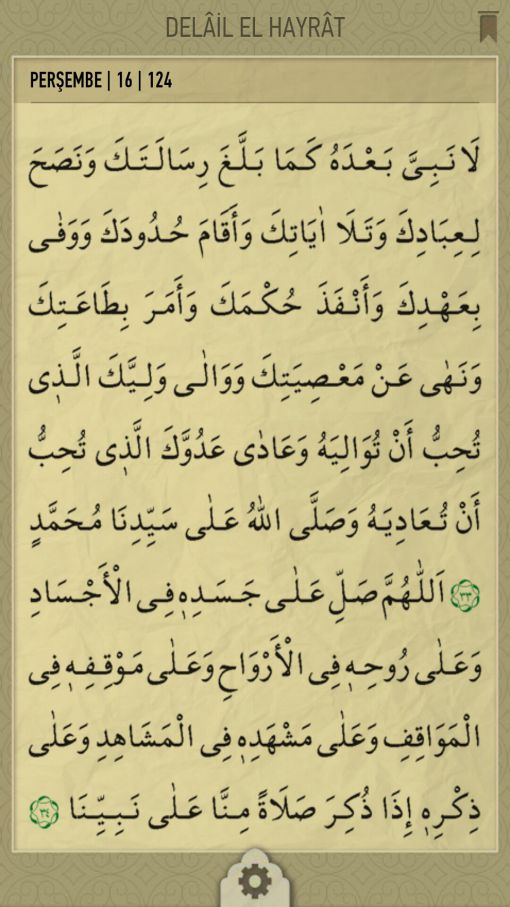 DELÂİL EL HAYRÂT
PERŞEMBE | 16 | 124
لَا نَبِىَّ بَعْدَهُ كَمَا بَلَّغَ رِسَالَتَكَ وَنَصَحَ
لِعِبَادِكَ وَتَلَا اٰيَاتِكَ وَأَقَامَ حُدُودَكَ وَوَفٰى
بِعَهْدِكَ وَأَنْفَذَ حُكْمَكَ وَأَمَرَ بِطَاعَتِكَ
وَنَهٰى عَنْ مَعْصِيَتِكَ وَوَالٰى وَلِيَّكَ الَّذٖى
تُحِبُّ أَنْ تُوَالِيَهُ وَعَادٰى عَدُوَّكَ الَّذٖى تُحِبُّ
أَنْ تُعَادِيَهُ وَصَلَّى اللّٰهُ عَلٰى سَيِّدِنَا مُحَمَّدٍ
٣٣ اَللّٰهُمَّ صَلِّ عَلٰى جَسَدِهٖ فِى الْأَجْسَادِ
وَعَلٰى رُوحِهٖ فِى الْأَرْوَاحِ وَعَلٰى مَوْقِفِهٖ فِى
الْمَوَاقِفِ وَعَلٰى مَشْهَدِهٖ فِى الْمَشَاهِدِ وَعَلٰى
ذِكْرِهٖ إِذَا ذُكِرَ صَلَاةً مِنَّا عَلٰى نَبِيِّنَا ٣٤